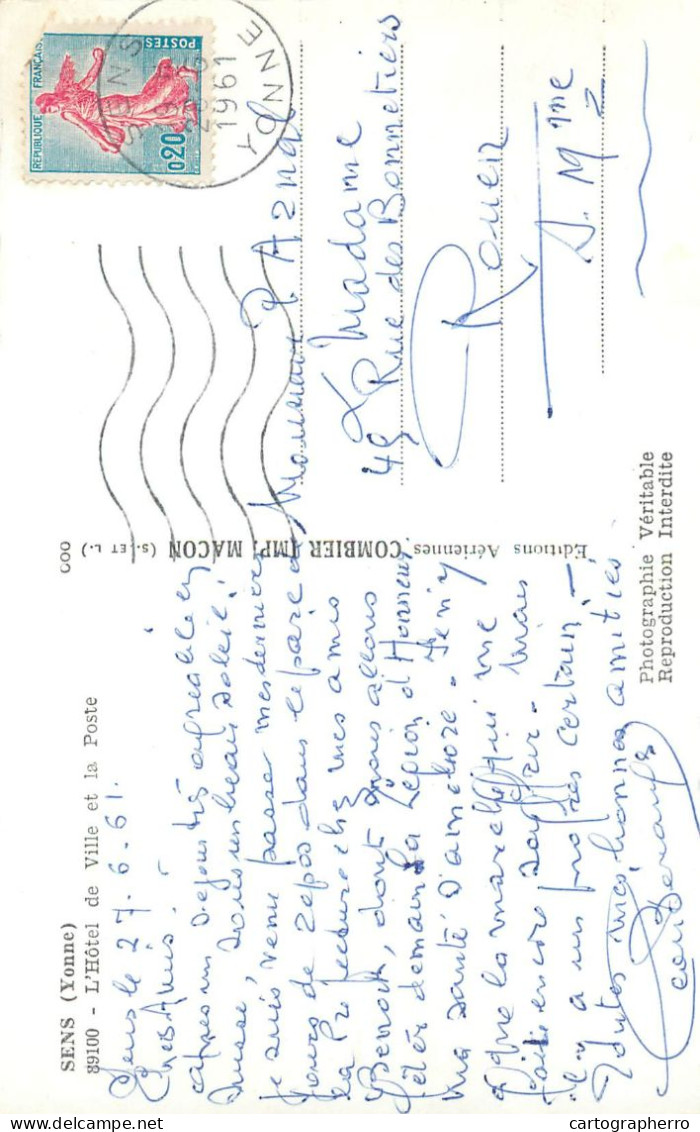 SENS (Yonne)
89100 - L'Hôtel de Ville et la Poste
Sens le 27.6.61.
Chers Amis.
après un séjour très agréable en
Suisse, sous un beau soleil!
Je suis venu passer mes derniers
jours de repos dans le parc de
la Préfecture chez mes amis
Benoit, dont nous allons
fêter demain la Légion d'Honneur
Ma santé s'améliore - Je n'y
que la marche qui me
fait encore souffrir. Mais
il y a un progrès certain -
Toutes mes bonnes amitiés
000
Editions Aériennes COMBIER IMP. MACON (S.-ET-L.)
Photographie Véritable
Reproduction Interdite
REPUBLIQUE FRANÇAISE
POSTES
0,20
SENS
1961
YONNE
Monsieur R Aznal
& Madame
49 Rue des Bonnetiers
Rouen
S. Mme
cartographerro